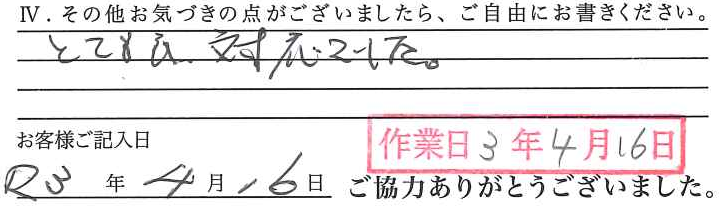 Ⅳ．その他お気づきの点がございましたら、ご自由にお書きください。
とても良い対応でした。
お客様ご記入日
作業日 3年4月16日
R3年4月16日
ご協力ありがとうございました。